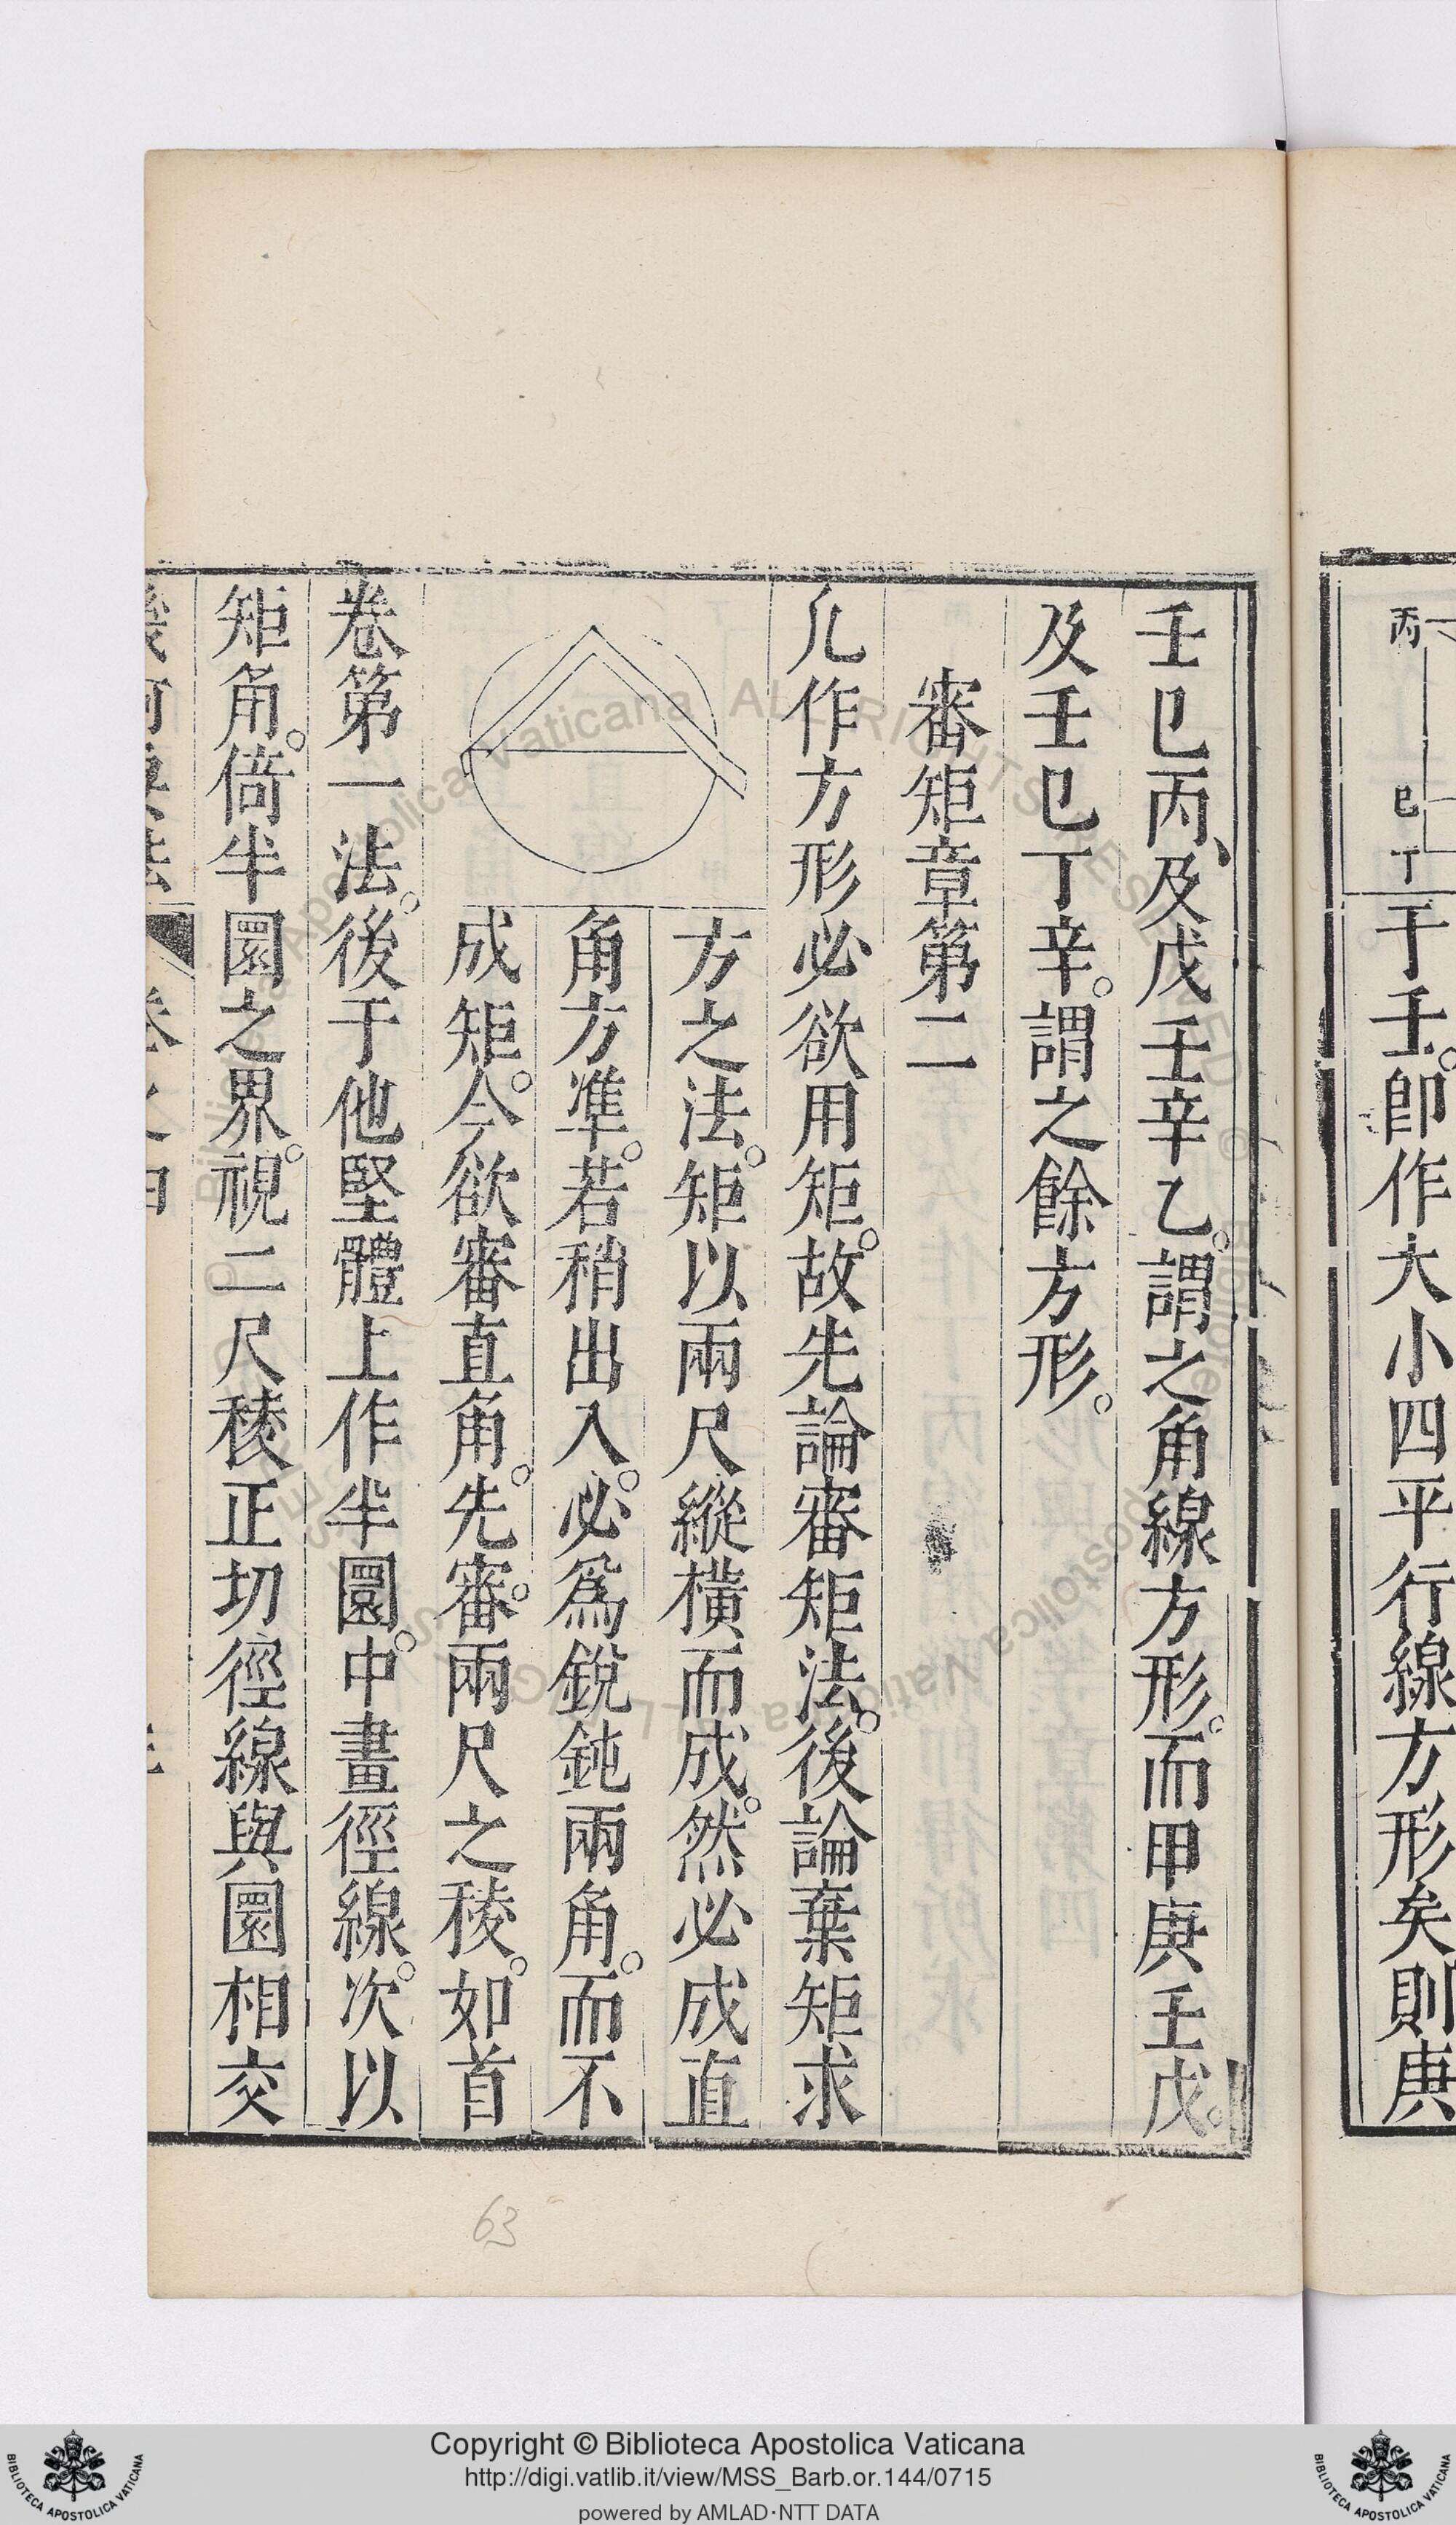 丙
巳
丁
于壬。卽作大小四平行線方形矣則庚
壬巳丙、及戊壬辛乙。謂之角線方形。而甲庚壬戊。
及壬巳丁辛。謂之餘方形。
審矩章第二
凡作方形必欲用矩。故先論審矩法。後論棄矩求
方之法。矩以兩尺縱橫而成。然必成直
角方準。若稍出入。必爲銳鈍兩角。而不
成矩。今欲審直角。先審。兩尺之稜。如首
卷第一法。後于他堅體上作半圜。中畫徑線。次以
矩角。倚半圜之界。視二尺稜正切徑線與圜相交
63
Copyright © Biblioteca Apostolica Vaticana
http://digi.vatlib.it/view/MSS_Barb.or.144/0715
powered by AMLAD·NTT DATA
BIBLIOTECA APOSTOLICA VATICANA
BIBLIOTECA APOSTOLICA VATICANA